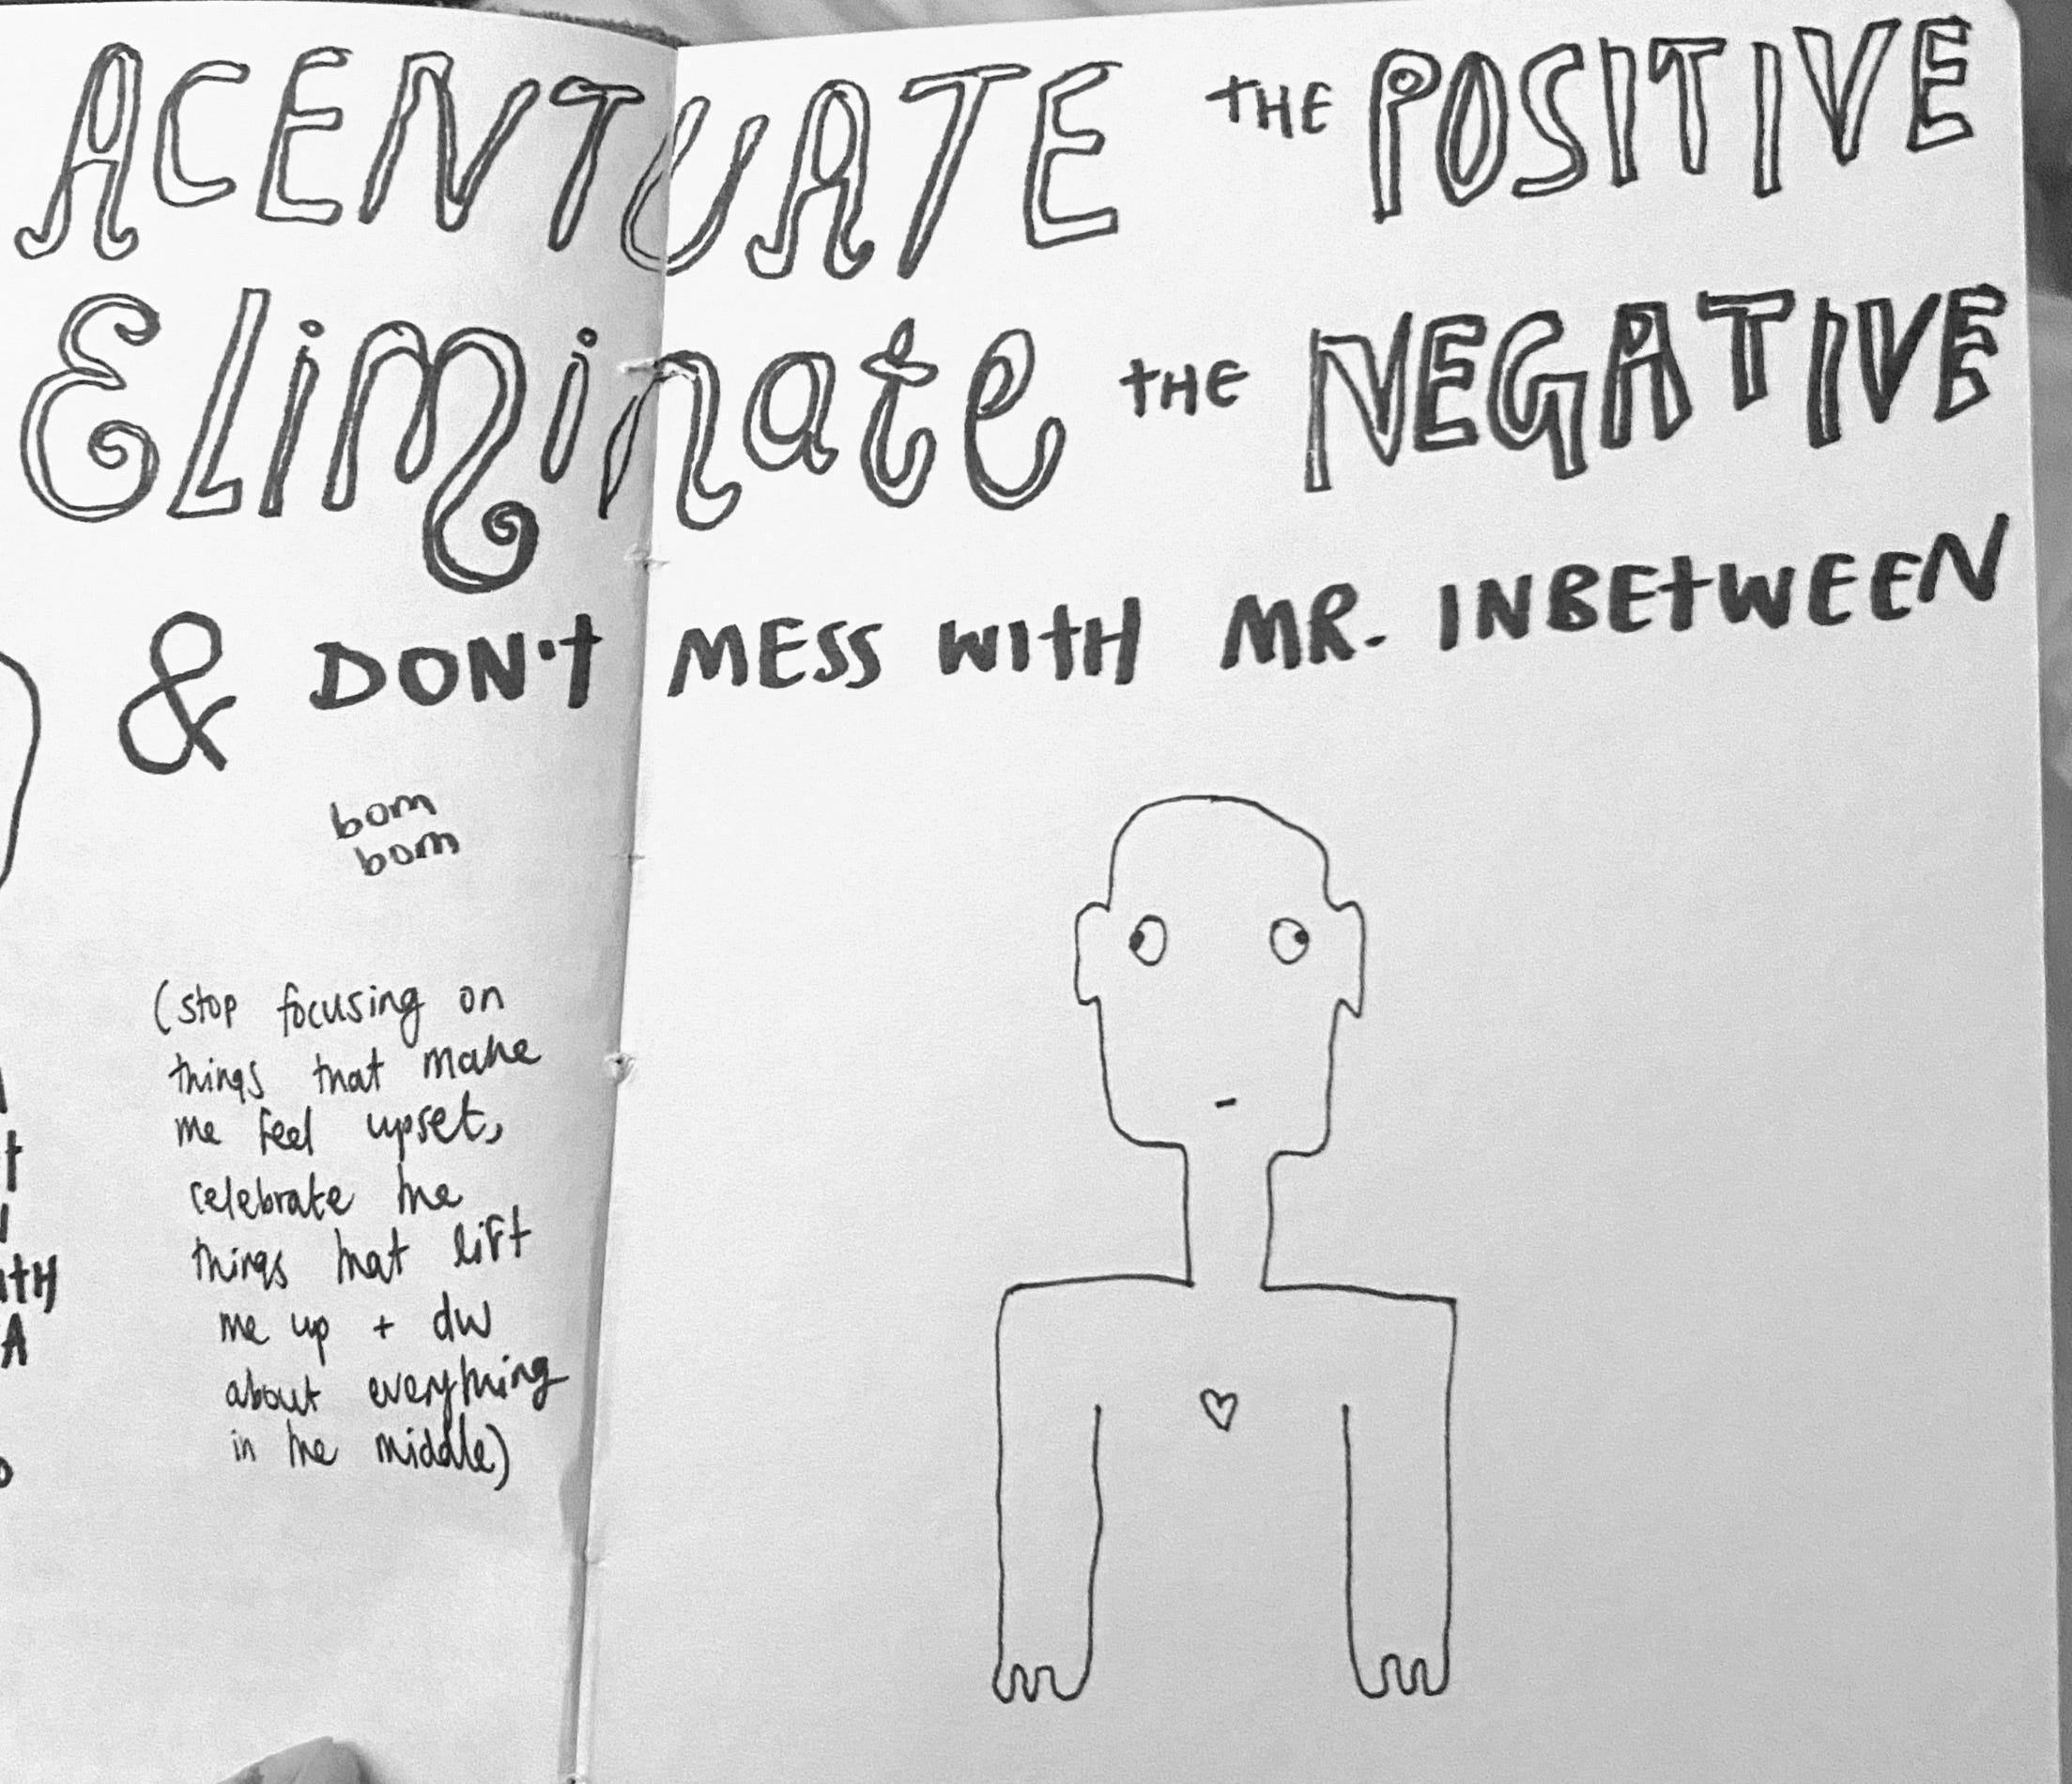 ACENTUATE THE POSITIVE
ELiMinate THE NEGATIVE
& DON't MESS WITH MR. INBETWEEN
bom
bom
(stop focusing on
things that make
me feel upset,
celebrate the
things that lift
me up + dw
about everything
in the middle)